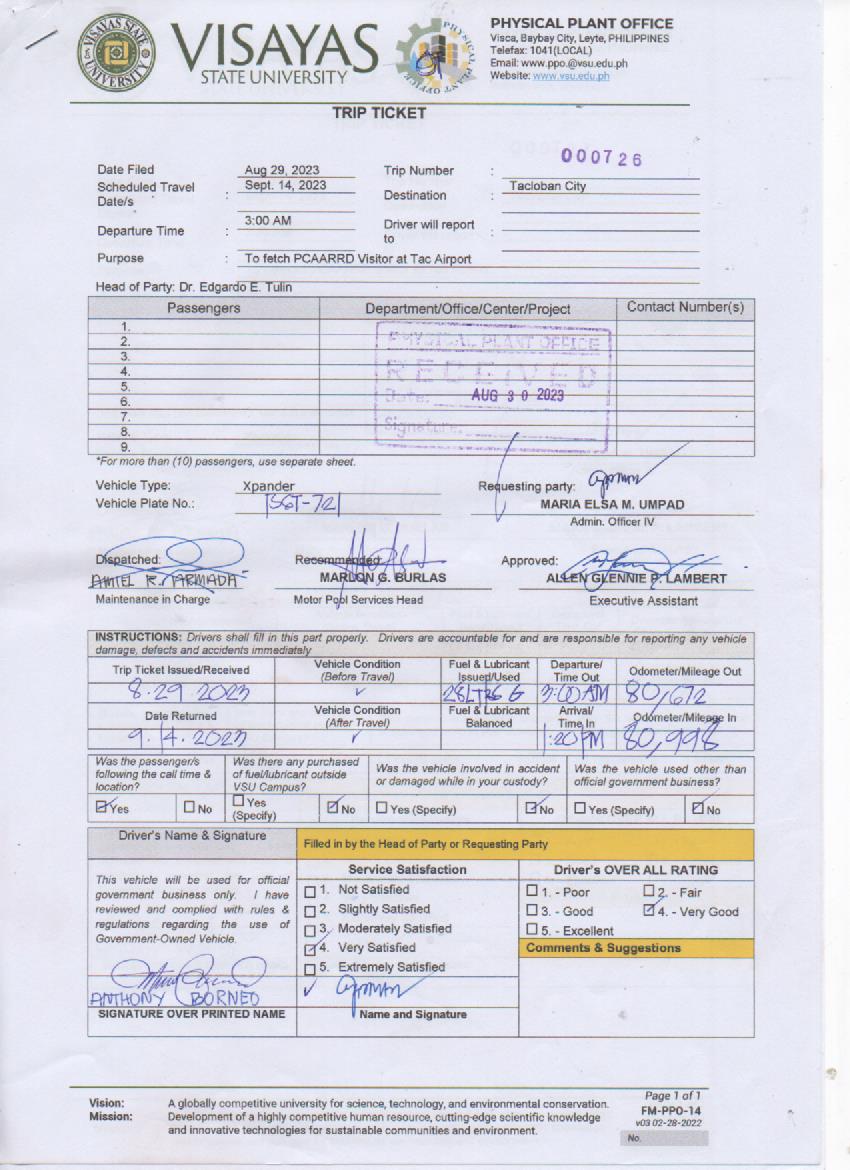 VISAYAS STATE UNIVERSITY
VISAYAS
STATE UNIVERSITY
PHYSICAL PLANT OFFICE
PHYSICAL PLANT OFFICE
Visca, Baybay City, Leyte, PHILIPPINES
Telefax: 1041(LOCAL)
Email: www.ppo.@vsu.edu.ph
Website: www.vsu.edu.ph
TRIP TICKET
000726
Date Filed Aug 29, 2023 Trip Number :
Scheduled Travel Date/s : Sept. 14, 2023 Destination : Tacloban City
Departure Time : 3:00 AM Driver will report to :
Purpose : To fetch PCAARRD Visitor at Tac Airport
Head of Party: Dr. Edgardo E. Tulin
Passengers Department/Office/Center/Project Contact Number(s)
1.
2.
3.
4.
5.
6.
7.
8.
9.
PHYSICAL PLANT OFFICE
RECEIVED
Date: AUG 30 2023
Signature:
*For more than (10) passengers, use separate sheet.
Vehicle Type: Xpander Requesting party:
Vehicle Plate No.: SGT-721 MARIA ELSA M. UMPAD
Admin. Officer IV
Dispatched: Recommended Approved:
AMIEL R. ARMADA MARLON G. BURLAS ALLEN GLENNIE P. LAMBERT
Maintenance in Charge Motor Pool Services Head Executive Assistant
INSTRUCTIONS: Drivers shall fill in this part properly. Drivers are accountable for and are responsible for reporting any vehicle
damage, defects and accidents immediately
Trip Ticket Issued/Received Vehicle Condition (Before Travel) Fuel & Lubricant Issued/Used Departure/ Time Out Odometer/Mileage Out
8.29 2023 ✓ 3:00 AM 80,672
Date Returned Vehicle Condition (After Travel) Fuel & Lubricant Balanced Arrival/ Time In Odometer/Mileage In
9.14.2023 ✓ 1:20 PM 80,998
Was the passenger/s following the call time & location?
☑ Yes ☐ No
Was there any purchased of fuel/lubricant outside VSU Campus?
☐ Yes (Specify) ☑ No
Was the vehicle involved in accident or damaged while in your custody?
☐ Yes (Specify) ☑ No
Was the vehicle used other than official government business?
☐ Yes (Specify) ☑ No
Driver's Name & Signature
This vehicle will be used for official
government business only. I have
reviewed and complied with rules &
regulations regarding the use of
Government-Owned Vehicle.
ANTHONY BORNEO
SIGNATURE OVER PRINTED NAME
Filled in by the Head of Party or Requesting Party
Service Satisfaction
☐ 1. Not Satisfied
☐ 2. Slightly Satisfied
☐ 3. Moderately Satisfied
☑ 4. Very Satisfied
☐ 5. Extremely Satisfied
✓
Name and Signature
Driver's OVER ALL RATING
☐ 1. - Poor ☐ 2. - Fair
☐ 3. - Good ☑ 4. - Very Good
☐ 5. - Excellent
Comments & Suggestions
Vision: A globally competitive university for science, technology, and environmental conservation.
Mission: Development of a highly competitive human resource, cutting-edge scientific knowledge
and innovative technologies for sustainable communities and environment.
Page 1 of 1
FM-PPO-14
v03 02-28-2022
No.